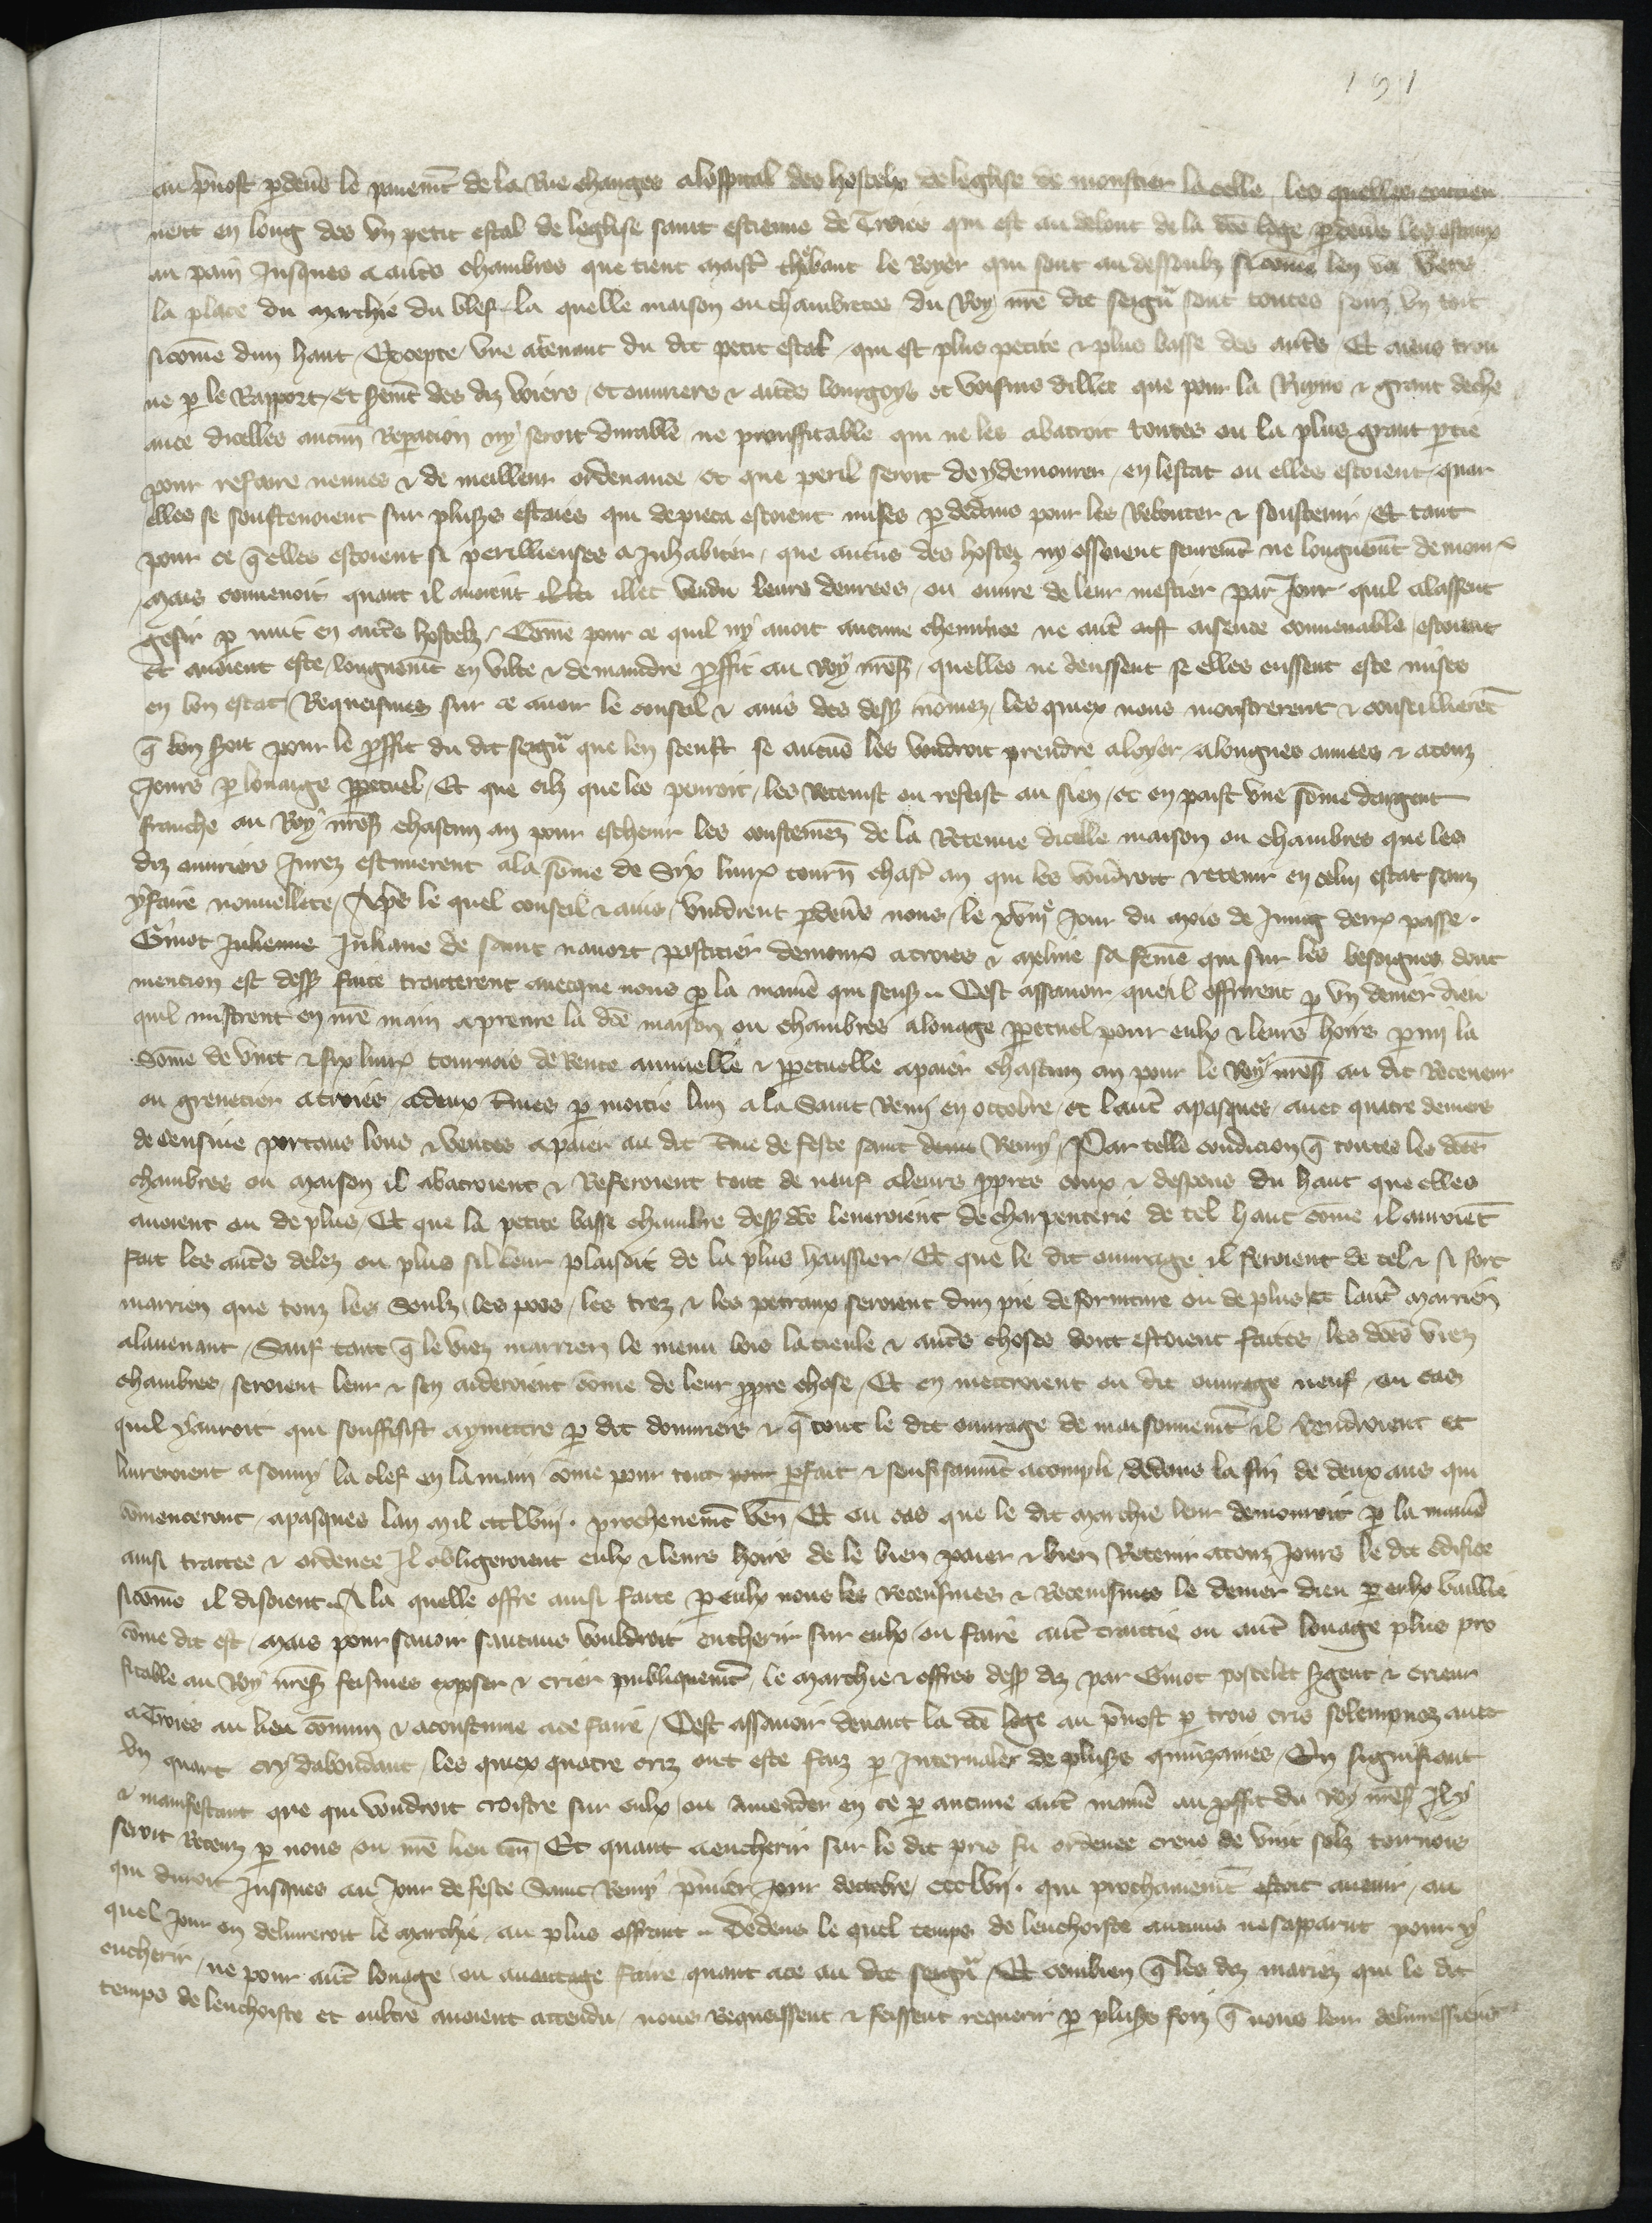 191
au p̄uost p̄deuͥs le pauemt̄ de la Rue changes a lospital des hostelx de leglise de monstier la celle, les quelles contien
nent en long des vn petit estal de leglise saint estienne de Troies qui est au debout de la dc̄e loge p̄deuͥs les estaux
au pain Jusques a aut̄s chambres que tient maist̄r thiebaut le Royer qui sont au dessoubz sicōme len va vers
la place du marchie du blef. la quelle maison ou chambretes du Roy nr̄e dit seigr̄ sont toutes souz vn toit
sicōme dun haut, Excepte vne atenant du dit petit estal, qui est plus petite & plus basse des aut̄s Et auons trou
ue p̄ le Rapport, et serm̄t des diz voiers, et ouuriers & aut̄s bourgoys et voisins dillec que pour la Ruyne & grant deche
ance dicelles aucun̄ Reparacion ny seroit durable ne prouffitable qui ne les abatroit toutes ou la plus grant p̄tie
pour refaire neuues & de meilleur ordenance, et que peril seroit de y demourer, en lestat ou elles estoient quar
elles se soustenoient sur plus̄s estaies qui de pieca estoient mises p̄ dedens pour les Rebouter & soustenir, Et tant
pour ce q̄ elles estoient si perillieuses a Inhabiter, que aucūs des hostez ny osoient seurem̄t ne longuem̄t demour
Mais conuenoit quant il auoient illec vendu leurs denrees, ou ouure de leur mestier par Jour quil alassent
gesir p̄ nuit en aut̄s hostelz, Cōme pour ce quil ny auoit aucune cheminee ne aut̄ aisence conuenable, estoient
et auoient este, longuem̄t en vilte & de maindre p̄ffit au Roy nr̄es̄, quelles ne deussent se elles eussent este mises
en bon estat, Requeismes sur ce auoir le conseil & auis des dess̄ nōmez, les quiex nous monstrerent & conseillierēt
q̄ bon seroit pour le p̄ffit du dit seigr̄ que len sceust se aucūs les voudroit prendre a loyer, a longues annees & a touz
Jours p̄ louaige p̄petuel, Et que cilz que les penroit, les Retenist ou refeist au sien, et en paiast vne sōme dargent
franche au Roy nr̄es̄ chascun an pour escheuir les coustemēz de la Retenue dicelle maison ou chambres que les
diz ouuriers Jurez estimerent a la sōme de Six liurͣ tourn̄ chasc̄ an qui les voudroit retenir en celui estat sanz
y faire nouuellete, Ap̄s le quel conseil & auis, vindrent p̄deuͥs nous, le xviijᵉ Jour du mois de Juing derr̄ passe.
Giuot Julienne Juliane de saint nauort pasticier demour a troies & Meline sa fēme qui sur les besoignes dont
mencion est dess̄ faite traiterent auecque nous p̄ la manie᷑ qui sensͫ. Cest assauoir queil offrirent p̄ vn denier dieu
quil mistrent en nr̄e main a penre la dc̄e maison ou chambres a louage p̄petuel pour eulx & leurs hoirs p̄mi la
Sōme de vint & six liurͣ tournois de Rente annuelle & p̄petuelle a paier chascun an pour le Roy nr̄es̄ au dit Receueur
ou grenetier a troies, a deux t̄mes p̄ moitie lun a la Saint Remy en octobre, et laut̄ a pasques, auec quatre deniers
de censiue portans lous & ventes a paier au dit t̄me de feste saint denis Remy, Par telle condicion q̄ toutes les dc̄es
chambres ou maison il abatroient & Referoient tout de neuf a leurs p̄pres coux & despens du haut que elles
auoient ou de plus, Et que la petite basse chambre dess̄ dc̄e leueroient de charpenterie de tel haut cōme il auroiēt
fait les aut̄s delez ou plus sil leur plaisoit de la plus haussier, Et que le dit ouurage il feroient de tel & si fort
marrien que touz les seulz, les poos, les trez & les petraux seroient dun pie de forniture ou de plus et laut̄ marrien
a lauenant, Sauf tant q̄ le viez marrien le menu bois la tieule & aut̄s choses dont estoient faites, les dc̄es viez
chambres, seroient leur & sen aideroient cōme de leur p̄pre chose, Et en mettroient ou dit ouurage neuf, ou cas
quil y auroit qui souffisist a y mettre p̄ dit douuriers & q̄ tout le dit ouurage de maisonnem̄t il rendroient et
liurreroient a sonny la clef en la main cōme pour tout p̄fait & souffisamm̄t acompli, dedens la fin de deux ans qui
cōmencerent, a pasques lan mil cccLviij. prochenem̄t ven̄ Et ou cas que le dit marchie leur demourroit p̄ la manie᷑
ainsi traitee & ordenee Il obligeroient eulx & leurs hoirs de le bien paier & bien Retenir a touz Jours le dit edifice
sicōme il disoient. A la quelle offre ainsi faite p̄ eulx nous les receusmes & Receusmes le denier dieu p̄ eulx baillie
cōme dit est, Mais pour sauoir saucuns vouldroit encherir sur eulx ou faire aut̄ traittie ou aut̄ louage plus pro
fitable au Roy nr̄es̄ feismes exposer & crier publiquem̄t, le marchie & offres dess̄ diz par Giuot postelet s̄gent & crieur
a Troies au lieu cōmun & acoustume a ce faire, Cest assauoir deuant la dc̄e loge au p̄uost p̄ trois cris solempnez auec
vn quart cry dabondant, les quiex quatre criz ont este faiz p̄ Interualez de plus̄s quinzaines, En signifiant
& manifestant que qui voudroit croistre sur eulx, ou amender en ce p̄ aucune aut̄ manie᷑ au p̄ffit du Roy nr̄es̄ Il y
seroit Receuz p̄ nous ou nr̄e lieu ten̄, Et quant a encherir sur le dit pris fu ordenee creue de vint solz tournois
qui duroit Jusques au Jour de feste Saint Remy p̄mier Jour doctobre, cccLvij. qui prochainem̄t estoit auenir, au
quel Jour on deliureroit le marchie, au plus offrant. Dedens le quel temps de lencheriste aucuns ne sapparut pour y
encherir, ne pour aut̄ louage ou auantage faire quant a ce au dit seigr̄, Et combien q̄ les diz mariez qui le dit
temps de lencheriste et oultre auoient attendu, nous Requeissent & feissent requerir p̄ plus̄s foiz q̄ nous leur deliuressiens